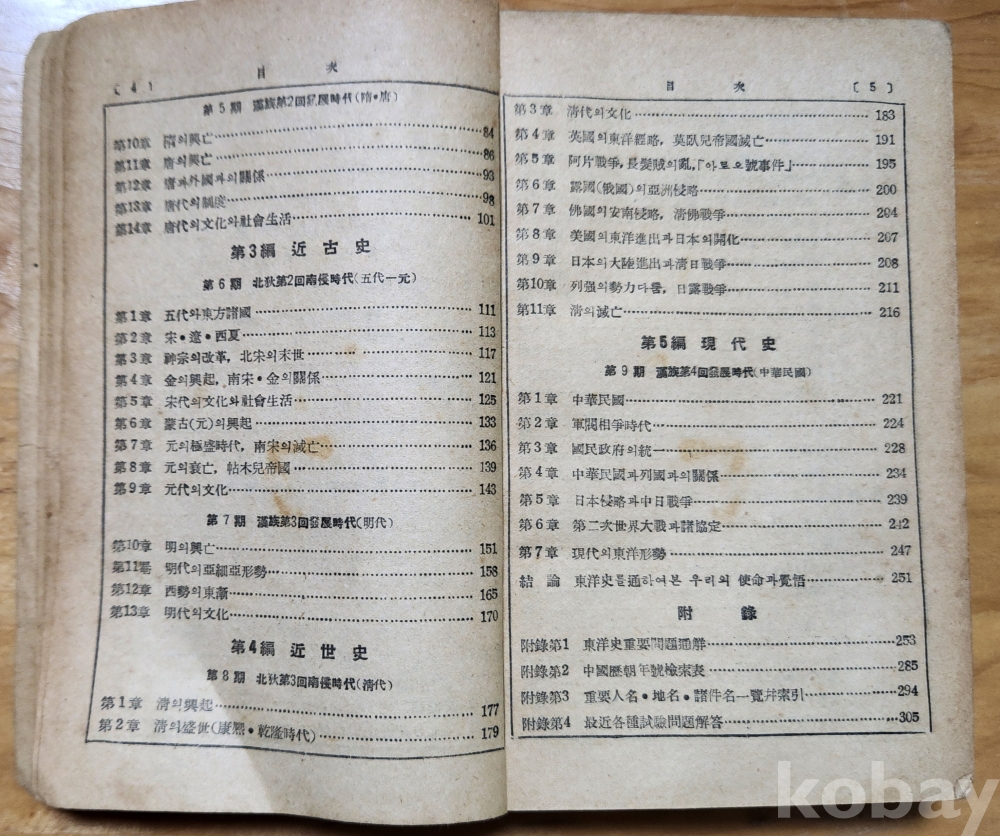 〔4〕 目次
第5期 漢族第2回發展時代(隋•唐)
第10章 隋의興亡 84
第11章 唐의興亡 86
第12章 唐과外國과의關係 93
第13章 唐代의制度 98
第14章 唐代의文化와社會生活 101
第3編 近古史
第6期 北狄第2回南侵時代(五代—元)
第1章 五代와東方諸國 111
第2章 宋•遼•西夏 113
第3章 神宗의改革, 北宋의末世 117
第4章 金의興起, 南宋•金의關係 121
第5章 宋代의文化와社會生活 125
第6章 蒙古(元)의興起 133
第7章 元의極盛時代, 南宋의滅亡 136
第8章 元의衰亡, 帖木兒帝國 139
第9章 元代의文化 143
第7期 漢族第3回發展時代(明代)
第10章 明의興亡 151
第11章 明代의亞細亞形勢 158
第12章 西勢의東漸 165
第13章 明代의文化 170
第4編 近世史
第8期 北狄第3回南侵時代(清代)
第1章 清의興起 177
第2章 清의盛世(康熙•乾隆時代) 179
目次 〔5〕
第3章 清代의文化 183
第4章 英國의東洋經略, 莫臥兒帝國滅亡 191
第5章 阿片戰爭, 長髮賊의亂,「아로오號事件」 195
第6章 露國(俄國)의亞洲侵略 200
第7章 佛國의安南侵略, 清佛戰爭 204
第8章 美國의東洋進出과日本의開化 207
第9章 日本의大陸進出과清日戰爭 208
第10章 列强의勢力다툼, 日露戰爭 211
第11章 清의滅亡 216
第5編 現代史
第9期 漢族第4回發展時代(中華民國)
第1章 中華民國 221
第2章 軍閥相爭時代 224
第3章 國民政府의統一 228
第4章 中華民國과列國과의關係 234
第5章 日本侵略과中日戰爭 239
第6章 第二次世界大戰과諸協定 242
第7章 現代의東洋形勢 247
結論 東洋史를通하여본 우리의 使命과覺悟 251
附錄
附錄第1 東洋史重要問題通解 253
附錄第2 中國歷朝年號檢索表 285
附錄第3 重要人名•地名•諸件名一覽幷索引 294
附錄第4 最近各種試驗問題解答 305
kobay